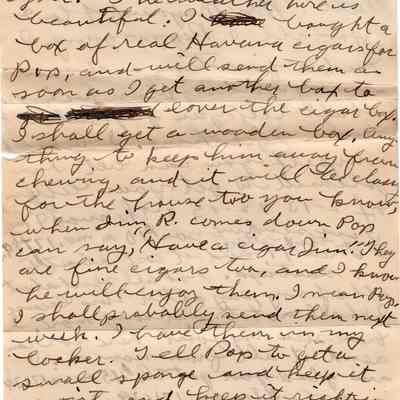 The weather here is
beautiful. I bought a
box of real Havana cigars for
Pop, and will send them as
soon as I get another box to
cover the cigar box.
I shall get a wooden box. Any
thing to keep him away from
chewing, and it will be class
for the house too you know,
when Jim R. comes down Pop
can say, "Have a cigar Jim." They
are fine cigars too, and I know
he will enjoy them. I mean Pop.
I shall probably send them next
week. I have them in my
locker. Tell Pop to get a
small sponge and keep it
and keep it right in